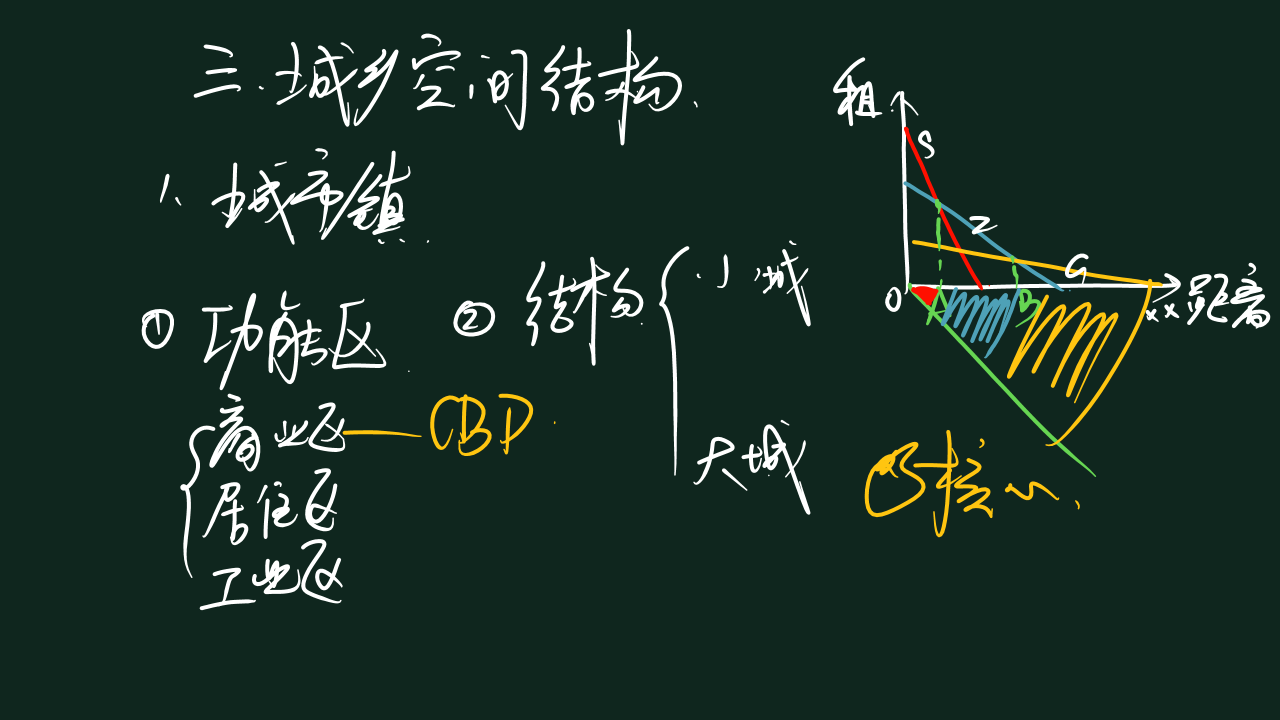 三.城乡空间结构.
1、城市/镇
① 功能区
商业区 — CBD
居住区
工业区
② 结构
小城
大城
核心
租
S
Z
G
O
A
B
xx 距离